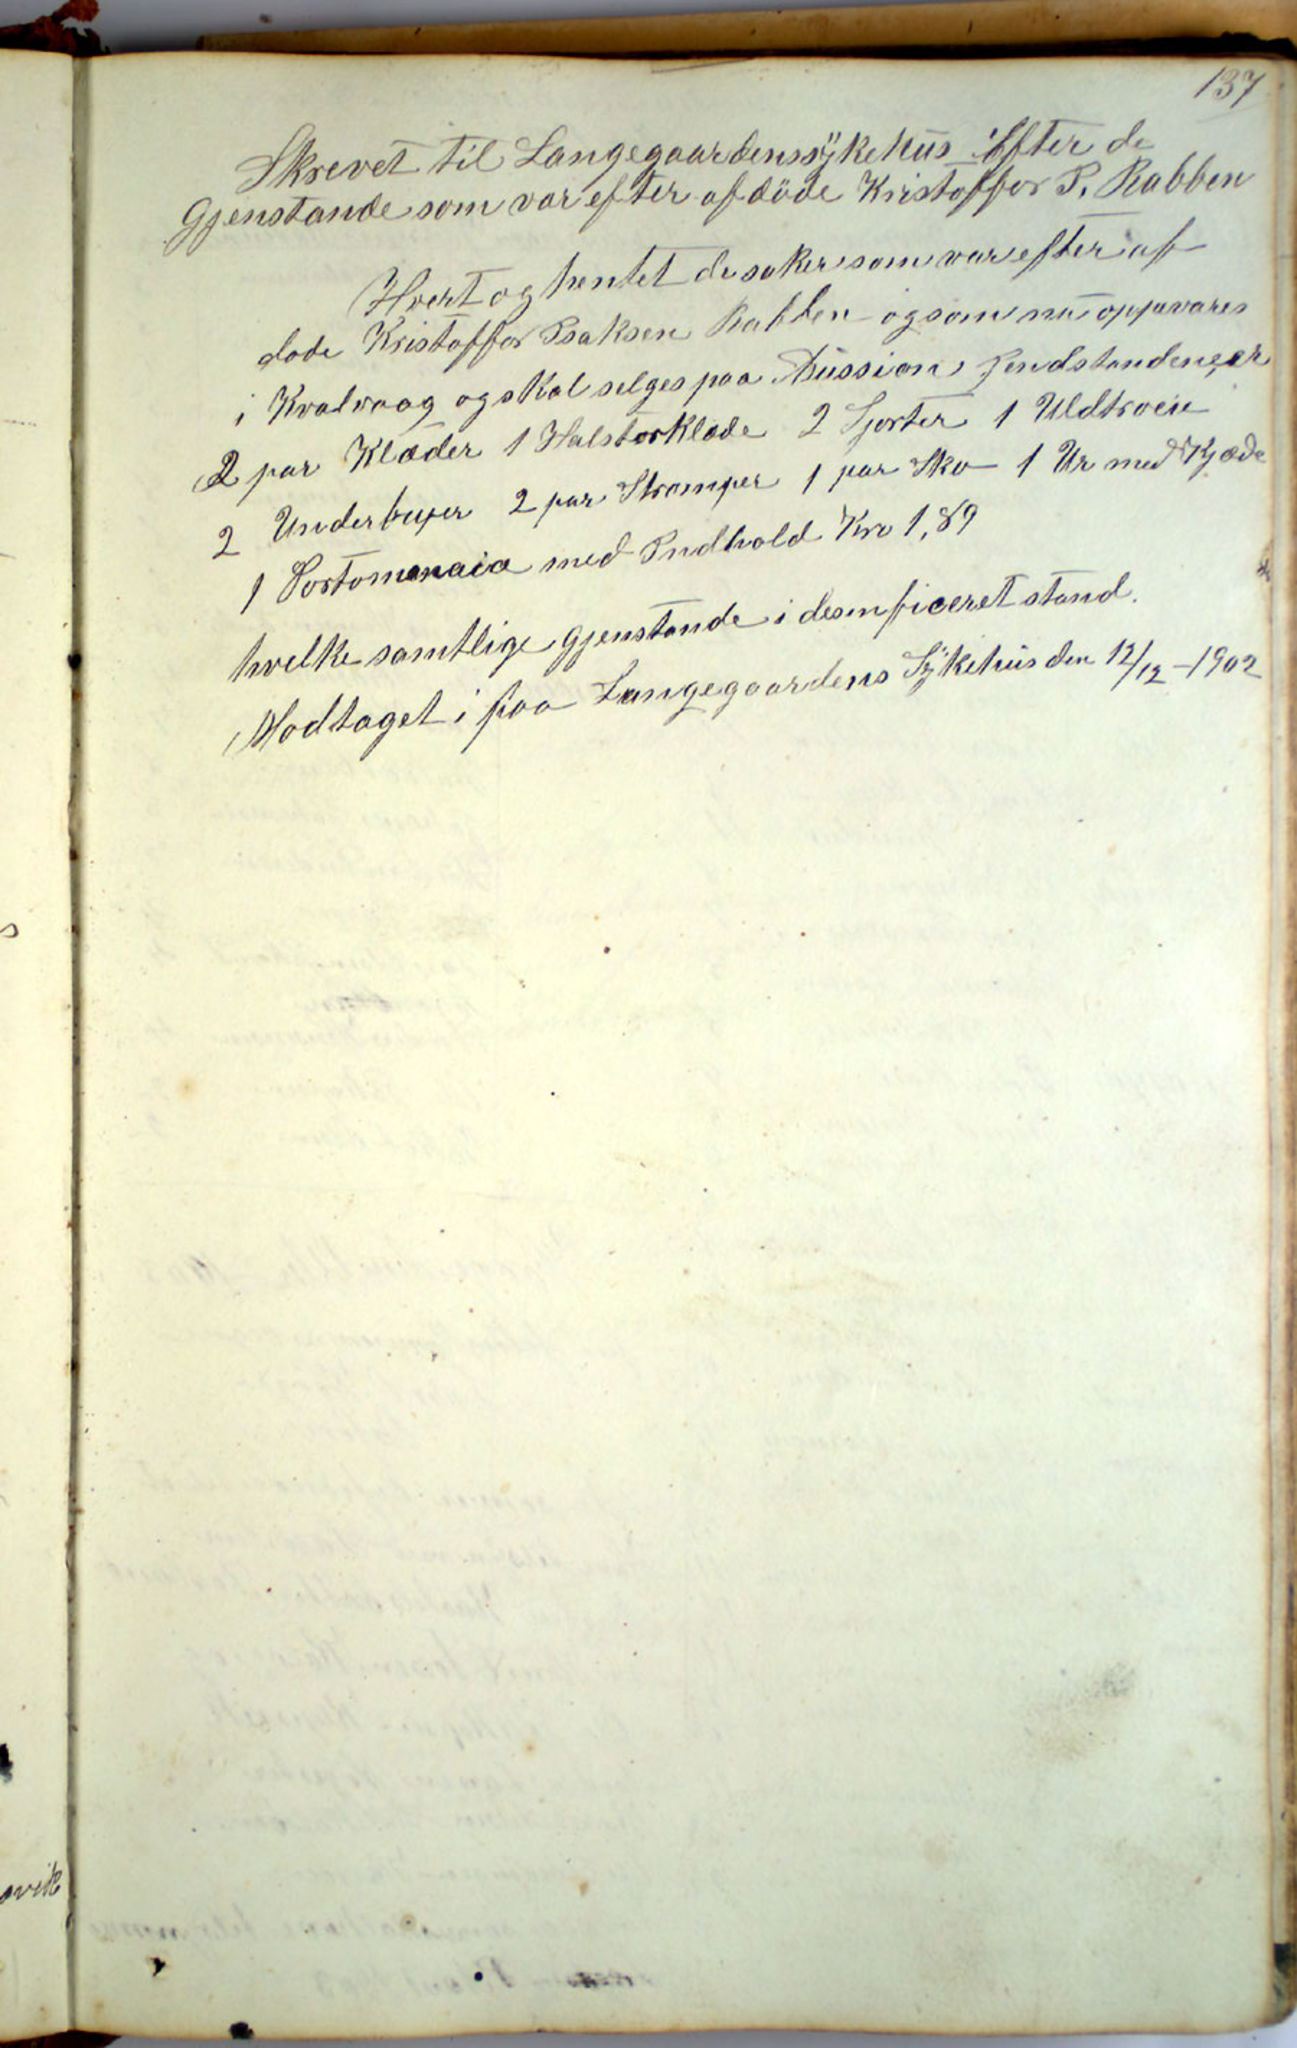 137
Skrevet til Langegaardenssÿkehus Efter de
Gjenstande som var efter afdöde Kristoffer I. Rabben
Hvert og hentet de saker som var efter af-
døde Kristoffer Isaksen Rabben og som nu oppavares
i Kvalvaag og skal selges paa Aussion, Jendstandene, er
2 par Klæder 1 Halstorklæde 2 Sjorter 1 Uldtroeie
2 Underbuxer 2 par Strømper 1 par Sko 1 Ur med Kjæde
1 Portomonaia med Indhold Kro 1,89
hvelke samtlige gjenstande i desinficeret stand.
Modtaget i paa Langegaardens Sÿkehus den 12/12 - 1902
s
svik